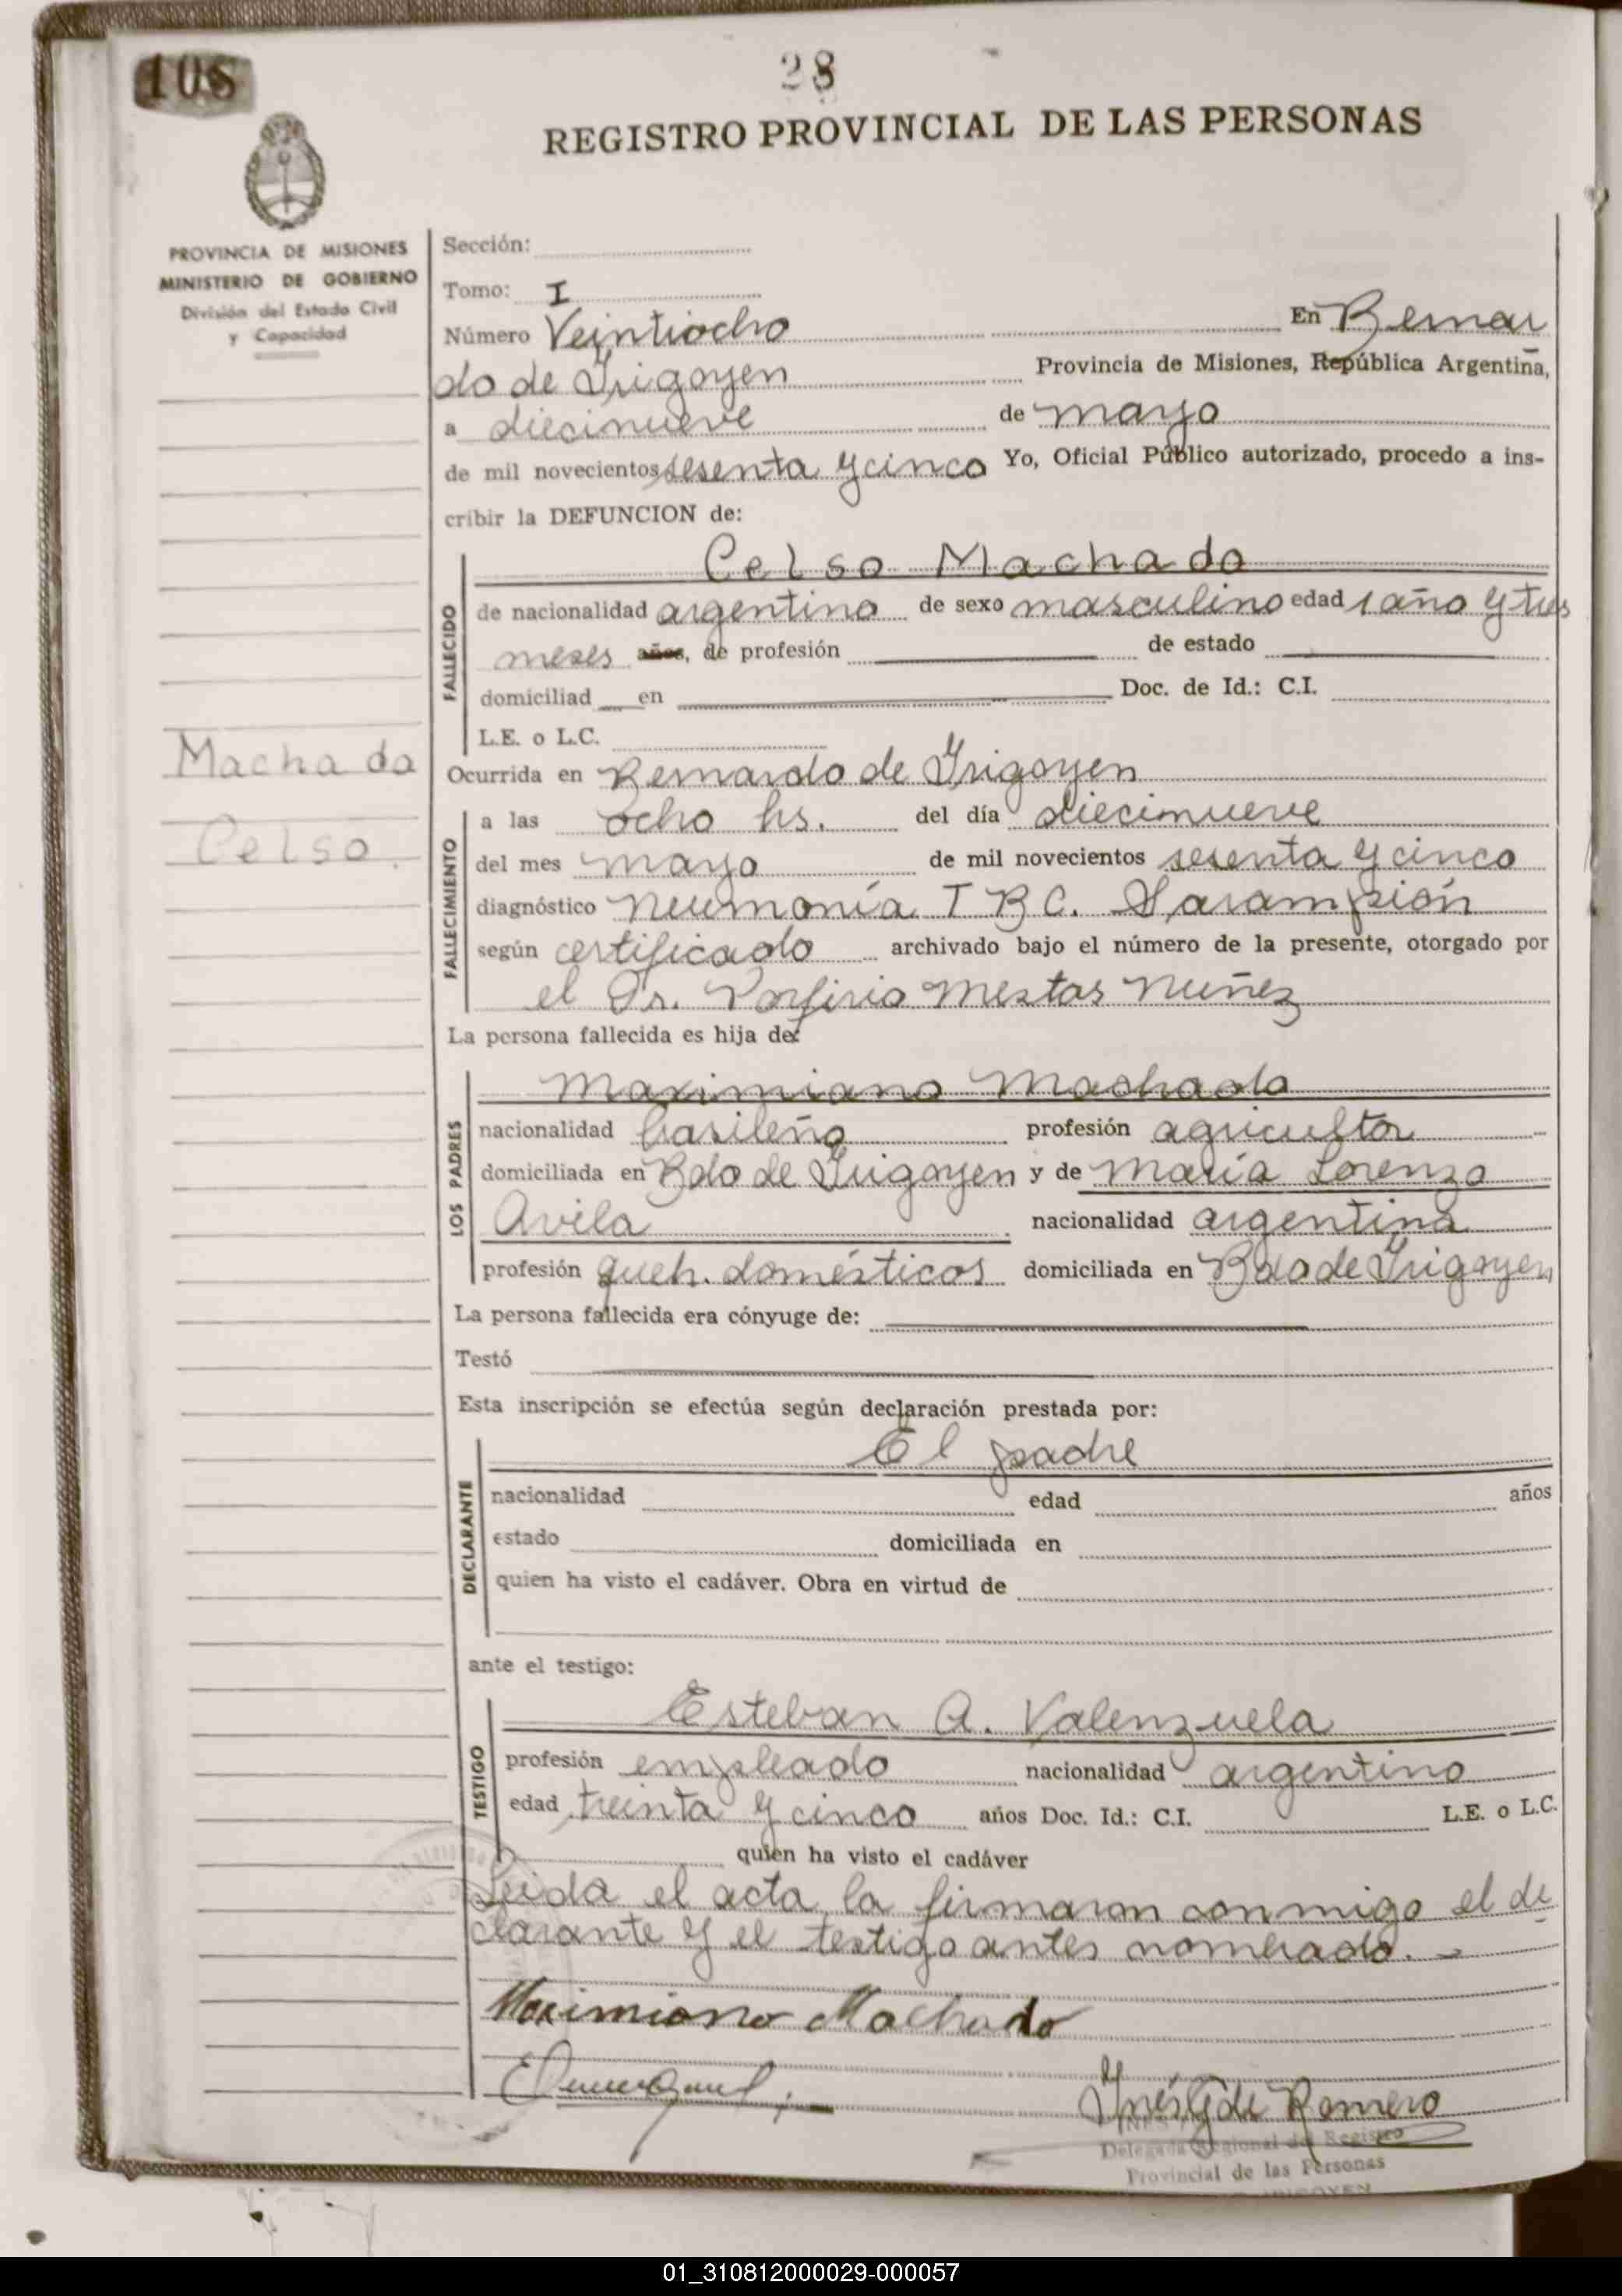 108
28
REGISTRO PROVINCIAL DE LAS PERSONAS
PROVINCIA DE MISIONES
MINISTERIO DE GOBIERNO
División del Estado Civil
y Capacidad
Sección:
Tomo: I
Número Veintiocho En Bernar
do de Irigoyen Provincia de Misiones, República Argentina,
a diecinueve de mayo
de mil novecientos sesenta y cinco Yo, Oficial Público autorizado, procedo a ins-
cribir la DEFUNCION de:
Celso Machado
FALLECIDO
de nacionalidad argentino de sexo masculino edad 1 año y tres
meses años, de profesión de estado
domiciliad en Doc. de Id.: C.I.
L.E. o L.C.
Machado
Celso.
Ocurrida en Bernardo de Irigoyen
FALLECIMIENTO
a las ocho hs. del día diecinueve
del mes mayo de mil novecientos sesenta y cinco
diagnóstico neumonía T B C. Sarampión
según certificado archivado bajo el número de la presente, otorgado por
el Dr. Porfirio Mestas Nuñez
La persona fallecida es hija de:
LOS PADRES
Maximiano Machado
nacionalidad brasileño profesión agricultor
domiciliada en Bdo de Irigoyen y de María Lorenza
Avila nacionalidad argentina
profesión queh. domésticos domiciliada en Bdo de Irigoyen
La persona fallecida era cónyuge de:
Testó
Esta inscripción se efectúa según declaración prestada por:
DECLARANTE
El padre
nacionalidad edad años
estado domiciliada en
quien ha visto el cadáver. Obra en virtud de
ante el testigo:
TESTIGO
Esteban A. Valenzuela
profesión empleado nacionalidad argentino
edad treinta y cinco años Doc. Id.: C.I. L.E. o L.C.
quien ha visto el cadáver
Leida el acta, la firmaron conmigo el de
clarante y el testigo antes nombrado.
Maximiano Machado
Inés G de Romero
Delegada Regional del Registro
Provincial de las Personas
01_310812000029-000057